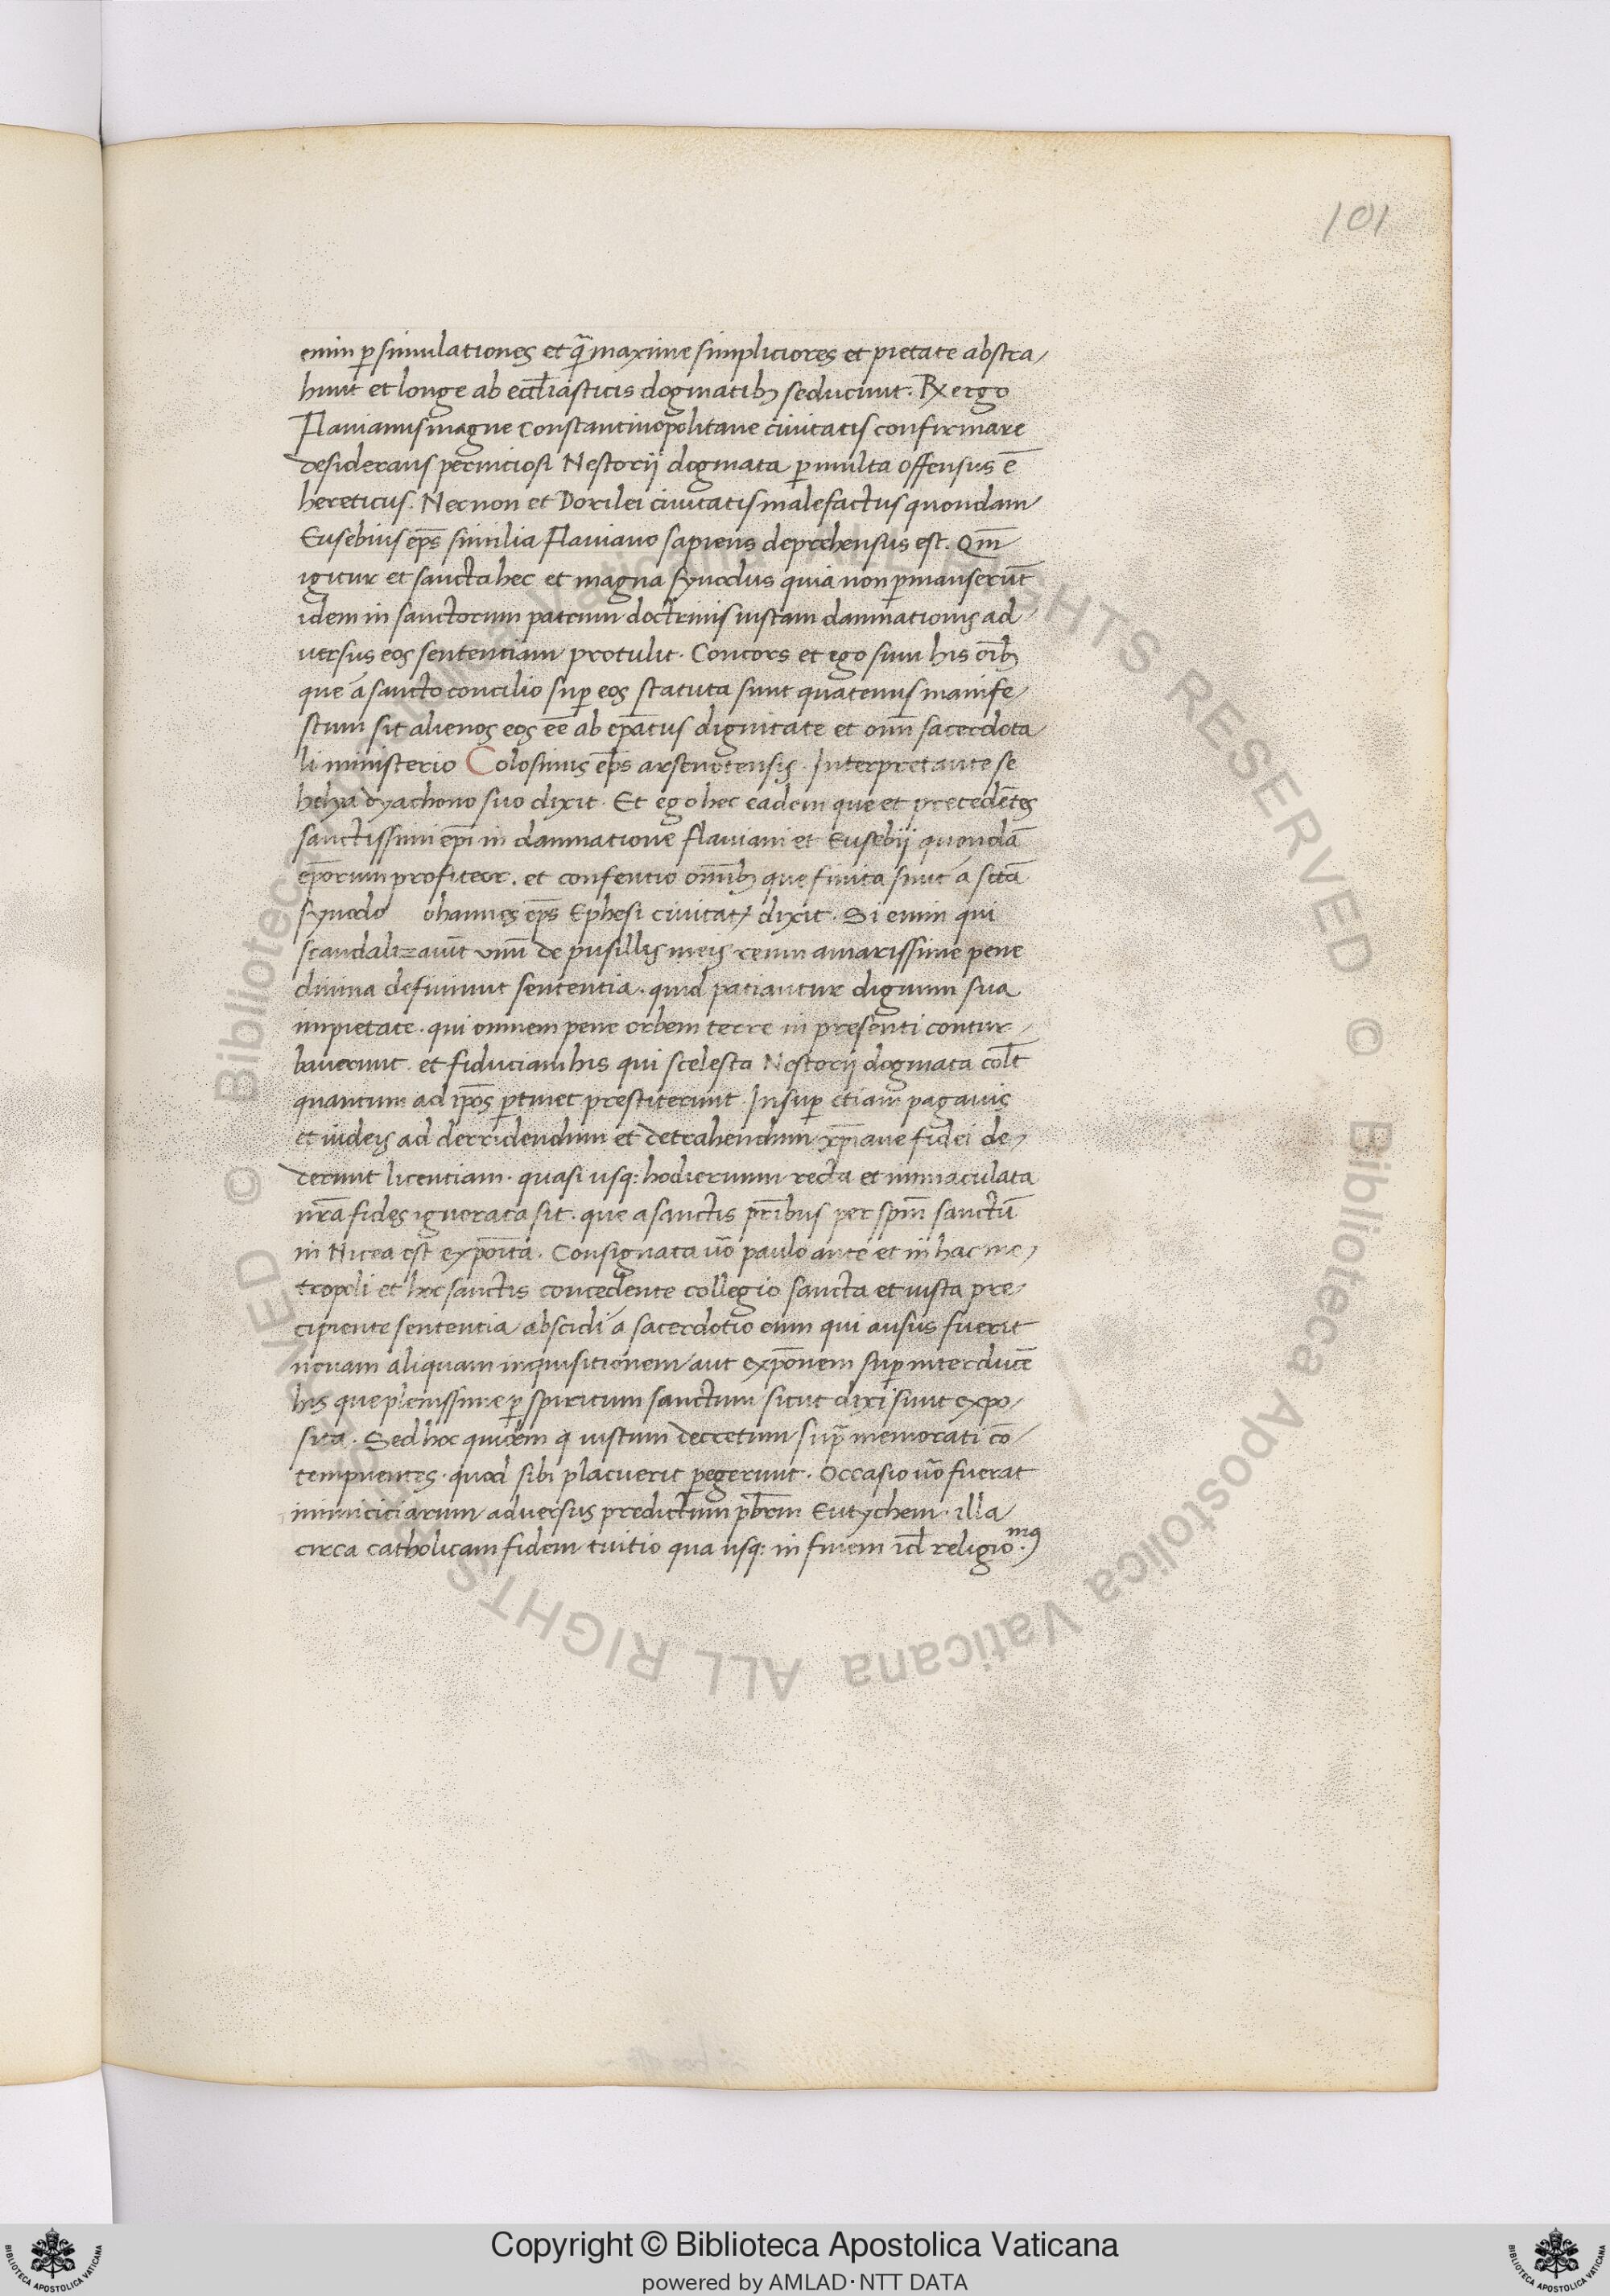 101
enim p simulationes et q̃ maxime simpliciores et pietate abstra/
hunt et longe ab eccl̃iasticis dogmatibȝ seducunt. Rx ergo
Flavianus magne Constantinopolitane civitatis confirmare
desiderans perniciosi Nestorij dogmata p multa offensus ē
hereticus. Necnon et Dorilei civitatis malefactus quondam
Eusebius ep̃s similia Flaviano sapiens deprehensus est. Qm̃
igitur et sancta hec et magna synodus quia non pmanserūt
idem in sanctorum patrum doctrinis iustam damnationis ad
versus eos sententiam protulit. Concors et ego sum his oĩbȝ
que á sancto concilio sup eos statuta sunt quatenus manife/
stum sit alienos eos eē ab ep̃atus dignitate et omī sacerdota
li ministerio Colosimus ep̃s arsenotensis. Interpretante se
helya dyachono suo dixit. Et ego hec eadem que et precedētes
sanctissimi ep̃i in damnatione flaviani et Eusebij quondā
ep̃orum profiteor. et consentio om̃ibȝ que finita sunt á sctā
synodo ohannes ep̃s Ephesi civitatꝭ dixit. Si enim qui
scandalizavūt unū de pusillis meis renum amarissime pene
divina definiunt sententia. quid patiantur dignum sua
impietate. qui omnem pene orbem terre in presenti contur/
baverunt. et fiduciam his qui scelesta Nestorij dogmata colt̃
quantum ad ip̃os ptinet prestiterunt. Insup etiam paganis
et iudeis ad derridendum et detrahendum xp̃iane fidei de/
derunt licentiam. quasi usq: hodiernum recta et immaculata
nr̃a fides ignorata sit. que a sanctis pr̃ibus per spm̃ sanctū
in Nicea est exp̃oita. Consignata ṽo paulo ante et in hac me/
tropoli et hoc sanctis concedente collegio sancta et iusta pre/
cipiente sententia abscidi á sacerdotio eum qui ausus fuerit
novam aliquam inquisitionem aut exp̃onem sup interducē
his que plenissime p spiritum sanctum sicut dixi sunt expo/
sita. Sed hoc quidem q iustum decretum sup̃ memorati cō
tempnentes. quod sibi placuerit pegerunt. Occasio ṽo fuerat
inimicitiarum adversus predictum pb̃rm Eutychem. illa
circa catholicam fidem tuitio qua usq: in finem id religio.mꝰ